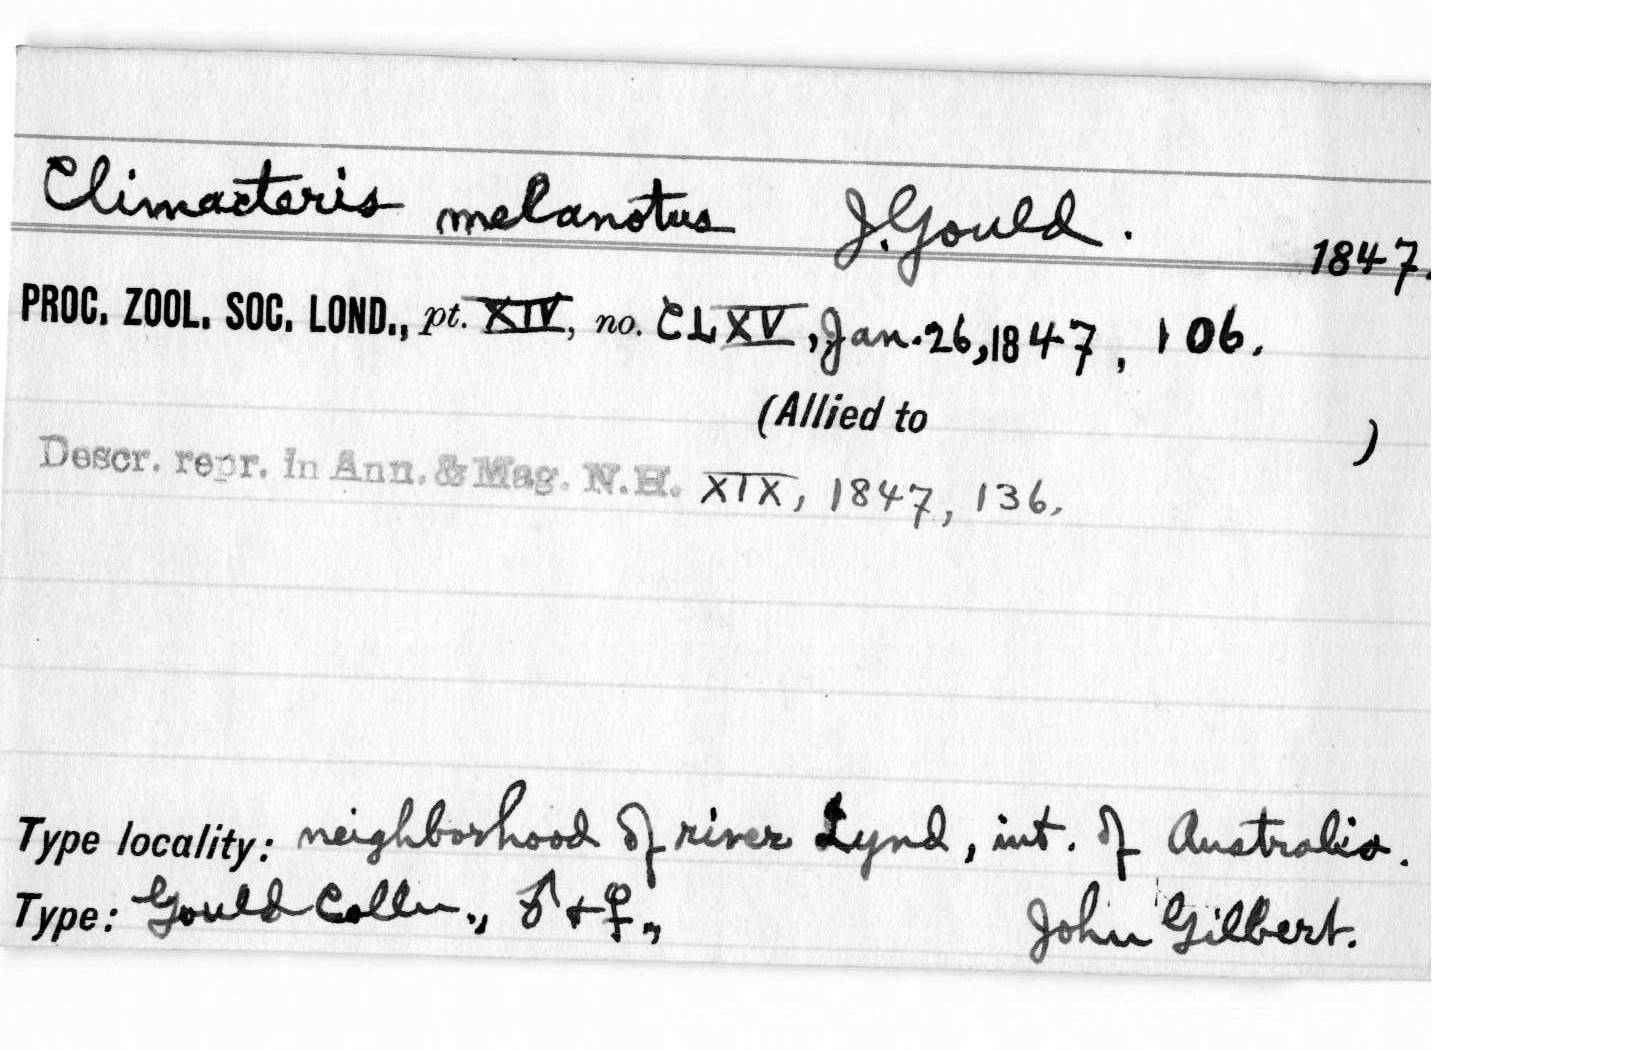 Climacteris melanotus J. Gould. 1847.
PROC. ZOOL. SOC. LOND., pt. XIV, no. CLXV, Jan. 26, 1847, 106.
(Allied to )
Descr. repr. in Ann. & Mag. N.H. XIX, 1847, 136.
Type locality: neighborhood of river Lynd, int. of Australia.
Type: Gould Colln., ♂ + ♀,, John Gilbert.